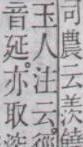 司農云羨饒
玉人注云徑
音延亦取